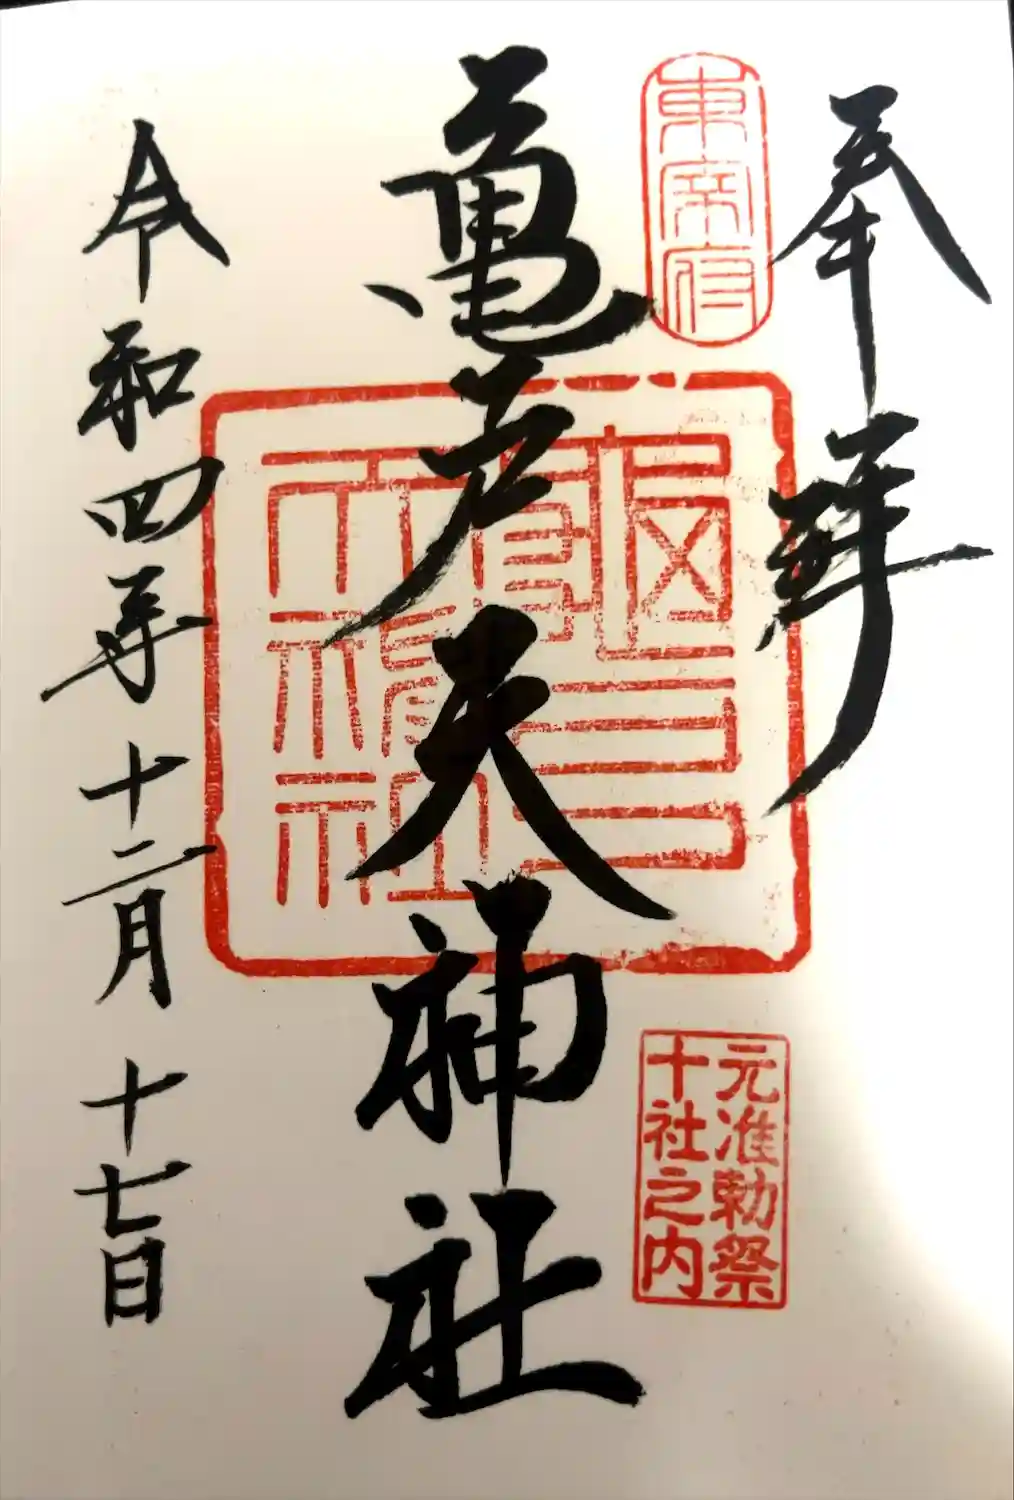 奉拝
東宰府
亀戸天神社
元准勅祭
十社之内
令和四年十二月十七日